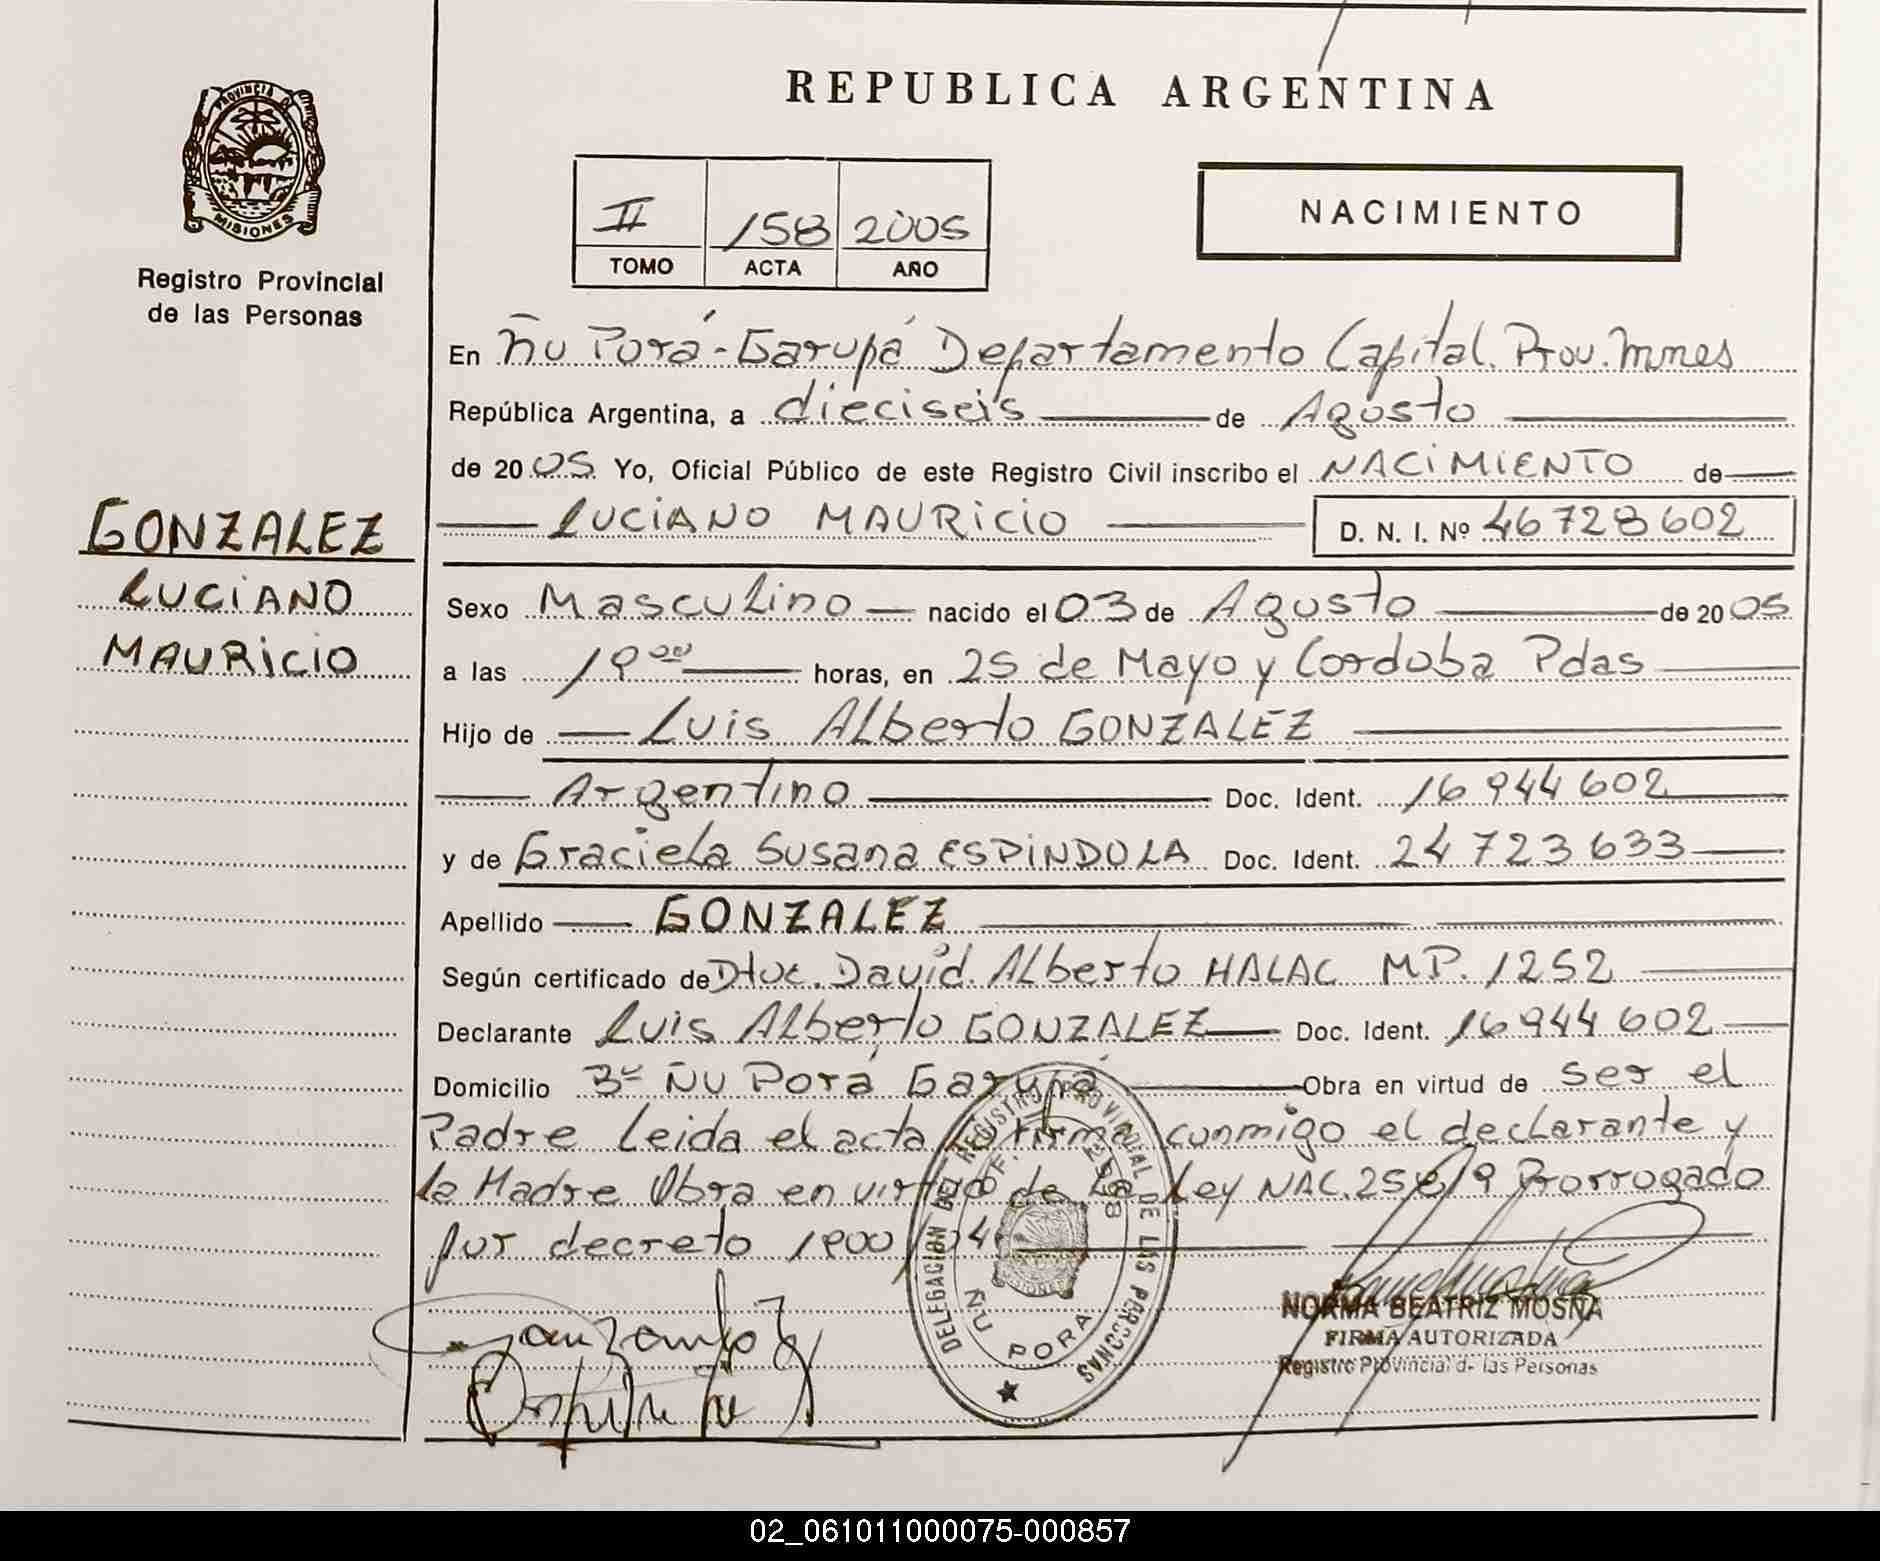 REPUBLICA ARGENTINA
PROVINCIA DE
MISIONES
Registro Provincial
de las Personas
II 158 2005
TOMO ACTA AÑO
NACIMIENTO
GONZALEZ
LUCIANO
MAURICIO
En Ñu Porá - Garupá Departamento Capital. Prov. Mnes
República Argentina, a dieciseis de Agosto
de 2005 Yo, Oficial Público de este Registro Civil inscribo el NACIMIENTO de
LUCIANO MAURICIO D. N. I. Nº 46728602
Sexo Masculino nacido el 03 de Agosto de 2005
a las horas, en 25 de Mayo y Cordoba Pdas
Hijo de Luis Alberto GONZALEZ
Argentino Doc. Ident. 16944602
y de Graciela Susana ESPINDOLA Doc. Ident. 24723633
Apellido GONZALEZ
Según certificado de Dtor. David Alberto HALAC MP. 1252
Declarante Luis Alberto GONZALEZ Doc. Ident. 16944602
Domicilio Bº Ñu Porá Garupá Obra en virtud de ser el
Padre Leida el acta la firma conmigo el declarante y
la Madre Obra en virtud de la Ley NAC. 25819 Prorrogado
por decreto
DELEGACION DEL REGISTRO PROVINCIAL DE LAS PERSONAS
OF. 2598
MISIONES
ÑU PORA
NORMA BEATRIZ MOSNA
FIRMA AUTORIZADA
Registro Provincial de las Personas
02_061011000075-000857